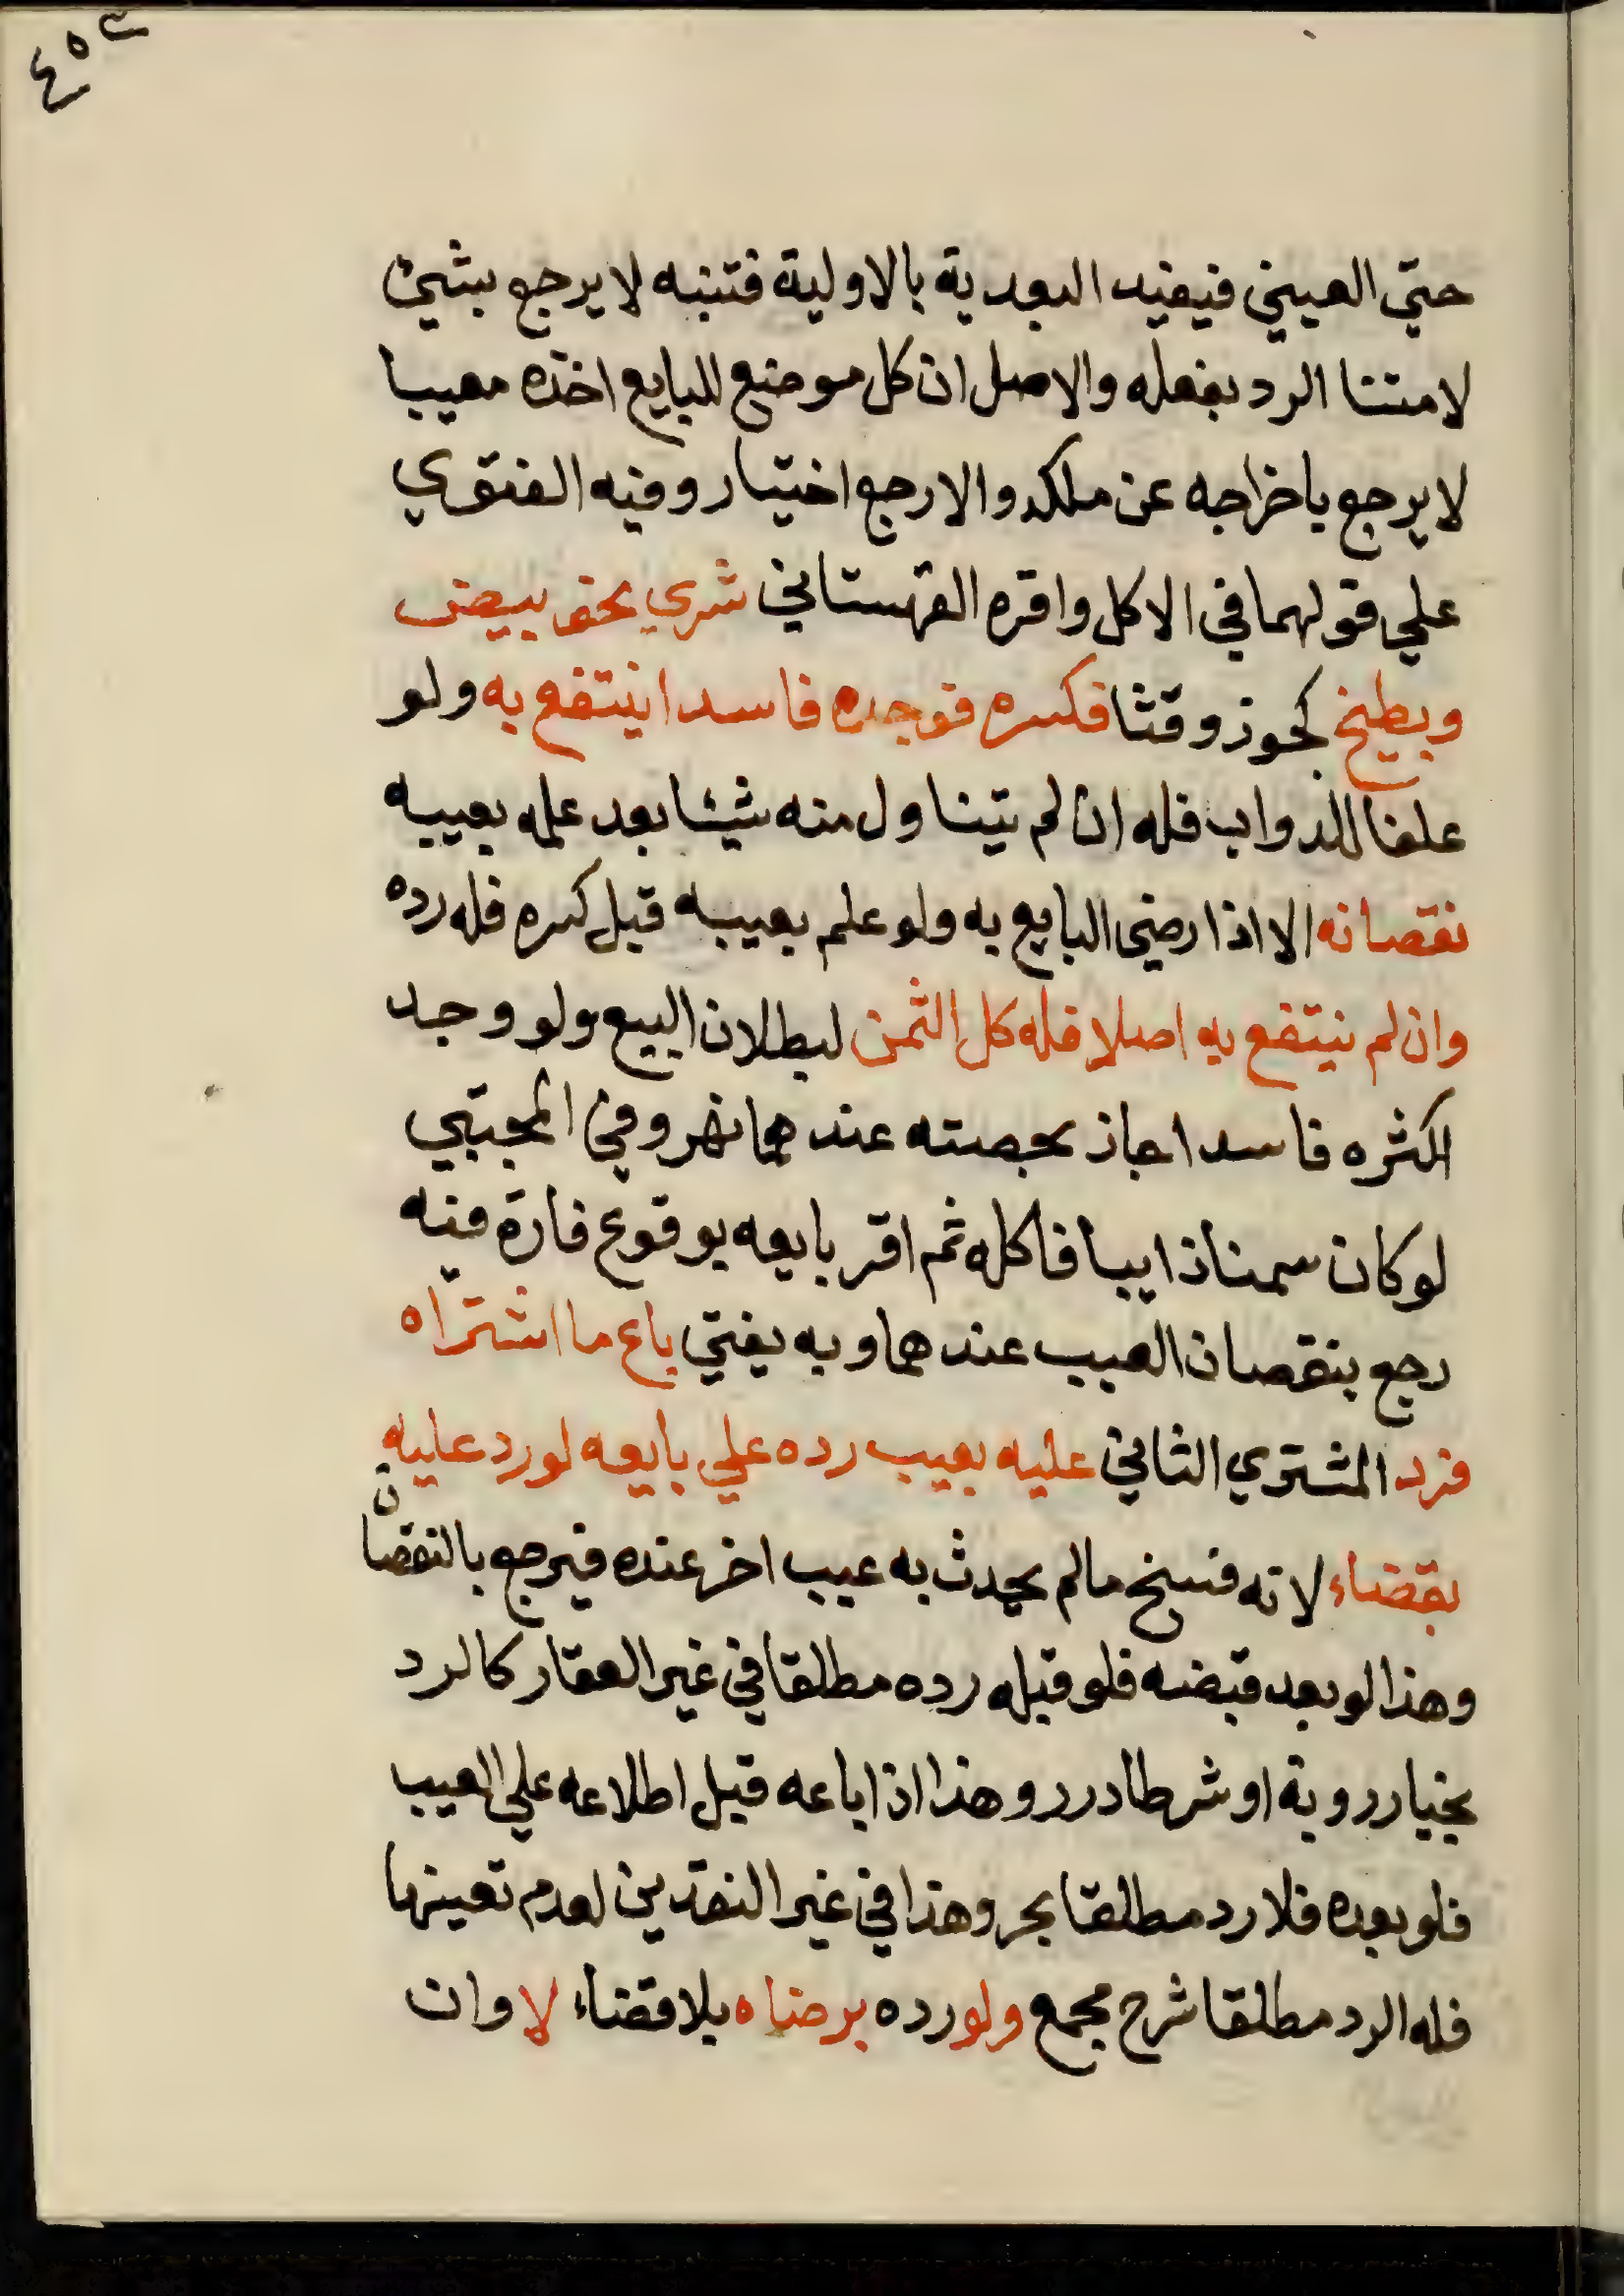 حتي العيني فيفيد البعدية بالاولية فتنبه لا يرجع بشيئ
لامتنا الرد بفعله والاصل ان كل موضع للبايع اخذه معيبا
لا يرجع باخراجه عن ملكه والا رجع اختيار وفيه الفتوي
علي قولهما في الاكل واقره القهستاني شري نحو بيض
وبطيخ كجوز وقثا فكسره فوجده فاسدا ينتفع به ولو
علفا للدواب فله ان لم يتناول منه شيئا بعد علمه بعيبه
نقصانه الا اذا رضي البايع به ولو علم بعيبه قبل كسره فله رده
وان لم ينتفع به اصلا فله كل الثمن لبطلان البيع ولو وجد
اكثره فاسدا جاز بحصته عندهما نهر وفي المجتبي
لو كان سمنا ذايبا فاكله ثم اقر بايعه بوقوع فارة فيه
رجع بنقصان العيب عندهما وبه يفتي باع ما اشتراه
فرد المشتري الثاني عليه بعيب رده علي بايعه لو رد عليه
بقضاء لانه فسخ ما لم يحدث به عيب اخر عنده فيرجع بالنقصان
وهذا لو بعد قبضه فلو قبله رده مطلقا في غير العقار كالرد
بخيار روية او شرط درر وهذا اذا باعه قبل اطلاعه علي العيب
فلو بعده فلا رد مطلقا بحر وهذا في غير النقدين لعدم تعينهما
فله الرد مطلقا شرح مجمع ولو رده برضاه بلا قضاء لا وان